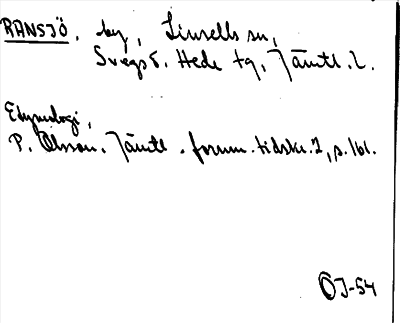 RANSJÖ, by, Linsells sn,
Svegs o. Hede tg, Jämtl. l.
Etymologi,
P. Olsson. Jämtl. fornm. tidskr. 2, s. 161.
OJ-54